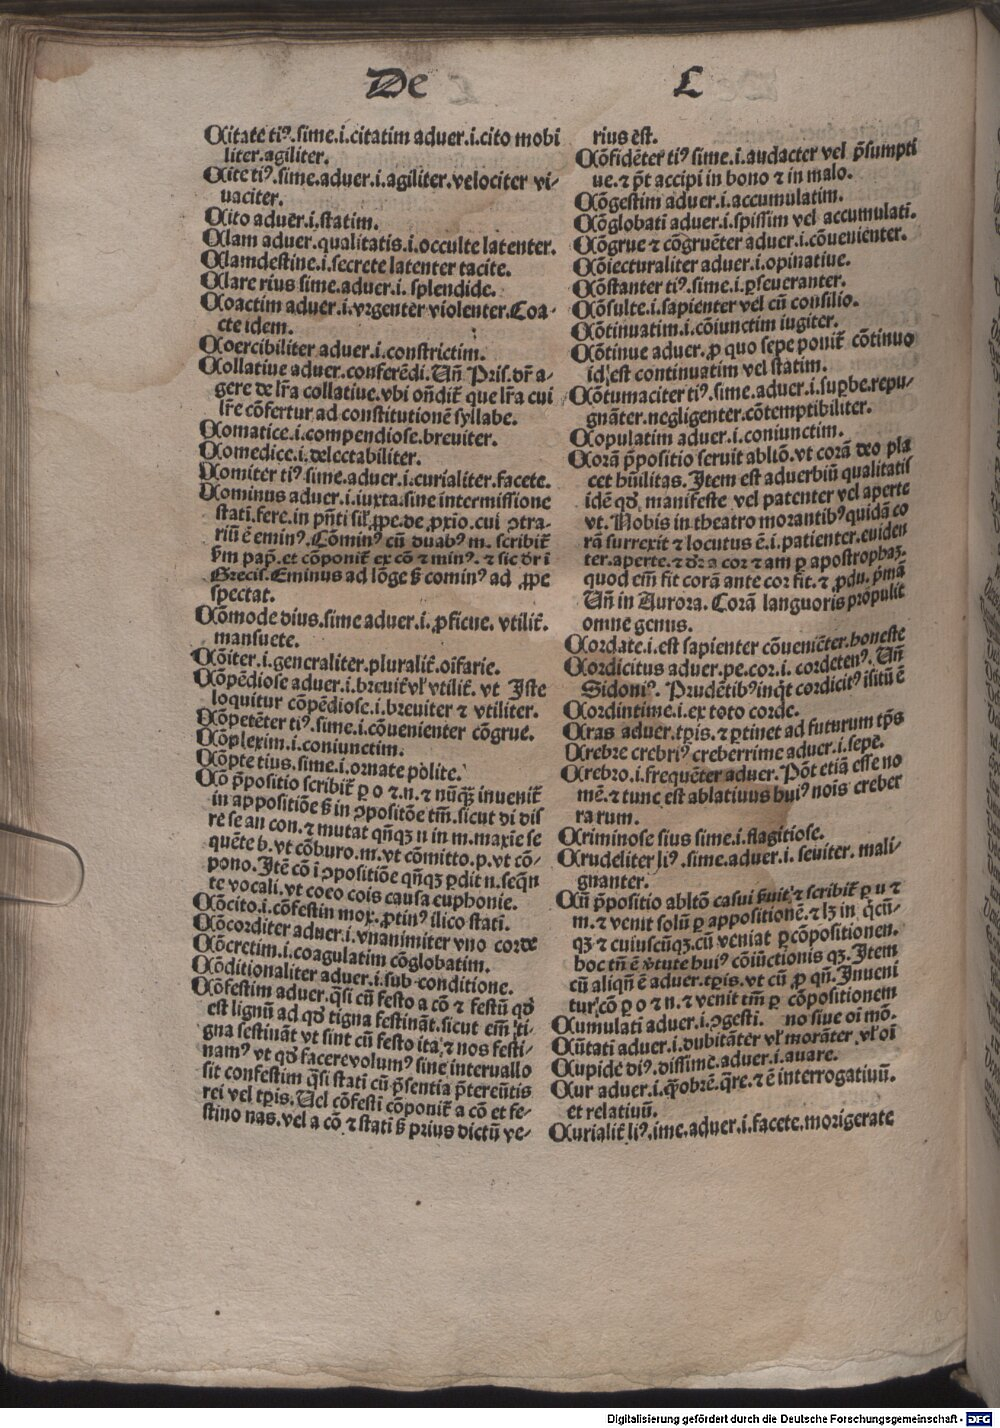 De C
Citate tiꝰ.sime.i.citatim aduer.i.cito mobi
liter.agiliter.
Cite tiꝰ.sime.aduer.i.agiliter.velociter vi⸗
uaciter.
Cito aduer.i.statim.
Clam aduer.qualitatis.i.occulte latenter.
Clamdestine.i.secrete latenter tacite.
Clare rius sime.aduer.i. splendide.
Coactim aduer.i.vrgenter violenter.Coa⸗
cte idem.
Coercibiliter aduer.i.constrictim.
Collatiue aduer.conferẽdi.Uñ Pris.dr̃ a⸗
gere de lr̃a collatiue.vbi oñdit̃ que lr̃a cui
lr̃e cõfertur ad constitutionẽ syllabe.
Comatice.i.compendiose.breuiter.
Comedice.i.delectabiliter.
Comiter tiꝰ.sime.aduer.i.curialiter.facete.
Cominus aduer.i.iuxta.sine intermissione
statĩ.fere.in pñti sil̃.ꝓpe.de ꝓxio.cui ↄtra⸗
riũ ẽ eminꝰ. Cõminꝰ cũ duabꝰ m. scribit̃
ẜm pap̃.et cõponit̃ ex cõ ⁊ minꝰ. ⁊ sic dr̃ i
Grecis.Eminus ad lõge ẜ cominꝰ ad ꝓpe
spectat.
Cõmode dius.sime aduer.i.ꝓficue. vtilit̃.
mansuete.
Cõiter.i.generaliter.pluralit̃.oĩfarie.
Cõpẽdiose aduer.i.breuit̃ vl̃ vtilit̃. vt Iste
loquitur cõpẽdiose.i.breuiter ⁊ vtiliter.
Cõpetẽter tiꝰ.sime.i.cõuenienter cõgrue.
Cõplexim.i.coniunctim.
Cõpte tius.sime.i.ornate polite.
Cõ p̃positio scribit̃ ꝑ o ⁊.n.⁊ nũqꝫ inuenit̃
in appositiõe ẜ in ↄpositõe tm̃.sicut di dis
re se an con.⁊ mutat qñqꝫ n in m.maxĩe se
quẽte b.vt cõburo.m.vt cõmitto.p.vt cõ⸗
pono.Itẽ cõ ĩ ↄpositiõe qñqꝫ ꝑdit n.seqñ
te vocali.vt coeo cois causa euphonie.
Cõcito.i.cõfestin mox.ꝓtinꝰ ilico statĩ.
Cõcorditer aduer.i.vnanimiter vno corde
Cõcretim.i.coagulatim cõglobatim.
Cõditionaliter aduer.i.sub conditione.
Cõfestim aduer.q̃si cũ festo a cõ ⁊ festũ qď
est lignũ ad qď tigna festinãt.sicut em̃ ti⸗
gna festinãt vt sint cũ festo ita ⁊ nos festi⸗
namꝰ vt qď facere volumꝰ sine interuallo
sit confestim q̃si statĩ cũ p̃sentia p̃tereũtis
rei vel tp̃is.Uel cõfestĩ cõponit̃ a cõ et fe⸗
stino nas.vel a cõ ⁊ statĩ ẜ prius dictũ ve⸗
rius est.
Cõfidẽter tiꝰ sime.i.audacter vel p̃sumpti
ue.⁊ p̃t accipi in bono ⁊ in malo.
Cõgestim aduer.i.accumulatim.
Cõglobatĩ aduer.i.spissim vel accumulatĩ.
Cõgrue ⁊ cõgruẽter aduer.i.cõuenienter.
Cõiecturaliter aduer.i.opinatiue.
Cõstanter tiꝰ.sime.i.ꝑseueranter.
Cõsulte.i.sapienter vel cũ consilio.
Cõtinuatim.i.cõiunctim iugiter.
Cõtinue aduer. ꝓ quo sepe ponit̃ cõtinuo
id est continuatim vel statim.
Cõtumaciter tiꝰ.sime.aduer.i.suꝑbe.repu⸗
gnãter.negligenter.cõtemptibiliter.
Copulatim aduer.i.coniunctim.
Corã p̃positio seruit abltõ.vt corã deo pla
cet hũilitas. Item est aduerbiũ qualitatis
idẽ qď manifeste vel patenter vel aperte
vt. Nobis in theatro morantibꝰ quidã co
rã surrexit ⁊ locutus ẽ.i.patienter.euiden
ter.aperte.⁊ dr̃ a cor ⁊ am ꝑ apostrophaꝫ.
quod em̃ fit corã ante cor fit.⁊ ꝓdu. p̃mã
Uñ in Aurora. Corã languoris propulit
omne genus.
Cordate.i.est sapienter cõueniẽter.honeste
Cordicitus aduer.pe.cor.i. cordetenꝰ. Uñ
Sidoniꝰ. Prudẽtibꝰ inq̃t cordicitꝰ isitũ ẽ
Cordintime.i.ex toto corde.
Cras aduer.tp̃is.⁊ ꝑtinet ad futurum tp̃s
Crebre crebriꝰ creberrime aduer.i.sepe.
Crebro.i.frequẽter aduer. Põt etiã esse no
mẽ.⁊ tunc est ablatiuus huiꝰ nois creber
ra rum.
Criminose sius sime.i.flagitiose.
Crudeliter liꝰ.sime.aduer.i. seuiter. mali⸗
gnanter.
Cũ p̃positio abltõ casui ẜuit ⁊ scribit̃ ꝑ u ⁊
m.⁊ venit solũ ꝑ appositionẽ.⁊ lꝫ in q̃cũ⸗
qꝫ ⁊ cuiuscũqꝫ.cũ veniat ꝑ cõpositionen.
hoc tñ ẽ v̓tute huiꝰ cõiũctionis qꝫ. Item
cũ aliqñ ẽ aduer.tp̃is.vt cũ ꝓ qñ. Inueni
tur cõ ꝑ o ⁊ n.⁊ venit tm̃ ꝑ cõpositionem
Cumulatĩ aduer.i.ↄgesti. no siue oĩ mõ.
Cũtatĩ aduer.i.dubitãter vl̃ morãter vl̃ oĩ
Cupide diꝰ.dissime.aduer.i.auare.
Cur aduer.i.q̃obrẽ.q̃re.⁊ ẽ interrogatiuũ.
et relatiuũ.
Curialit̃ liꝰ.ime.aduer.i.facete.morigerate
Digitalisierung gefördert durch die Deutsche Forschungsgemeinschaft - DFG